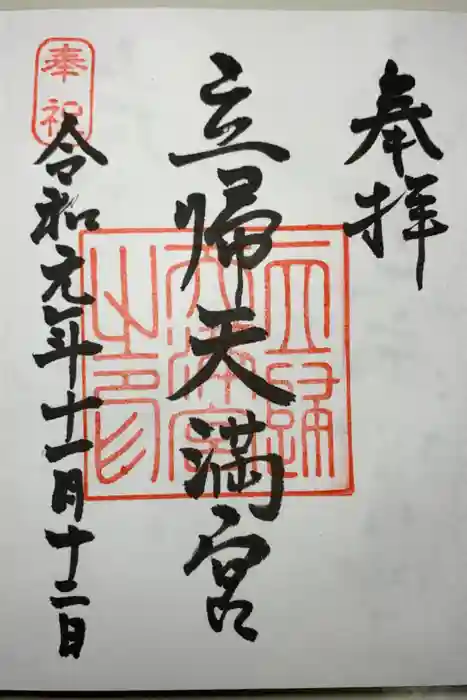 奉拝
立帰天満宮
立歸天満宮之印
奉祝
令和元年十一月十二日